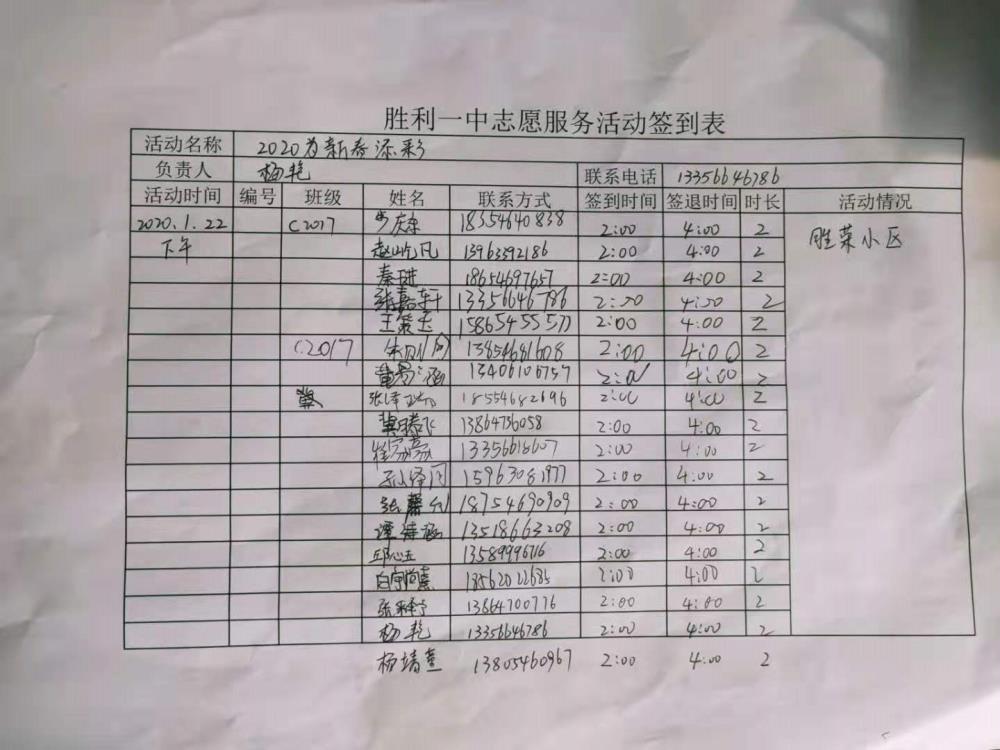 胜利一中志愿服务活动签到表
活动名称 2020为新春添彩
负责人 杨艳 联系电话 13356646786
活动时间 编号 班级 姓名 联系方式 签到时间 签退时间 时长 活动情况
2020.1.22 C2017 18354640838 2:00 4:00 2 胜荣小区
下午 赵屹凡 13963592186 2:00 4:00 2
秦琎 18654697657 2:00 4:00 2
张嘉轩 13356646786 2:00 4:00 2
王 玉 15865455577 2:00 4:00 2
C2017 朱 13854681608 2:00 4:00 2
涵 13406106757 2:00 4:00 2
张泽 18554682696 2:00 4:00 2
冀腾飞 13864756058 2:00 4:00 2
崔 13356618607 2:00 4:00 2
孙绎闵 15963081977 2:00 4:00 2
张 18754690909 2:00 4:00 2
谭诗涵 13518663208 2:00 4:00 2
邱心玉 13589996716 2:00 4:00 2
白宇 18562022685 2:00 4:00 2
张 宁 13664700776 2:00 4:00 2
杨艳 13356646786 2:00 4:00 2
杨靖萱 13805460967 2:00 4:00 2